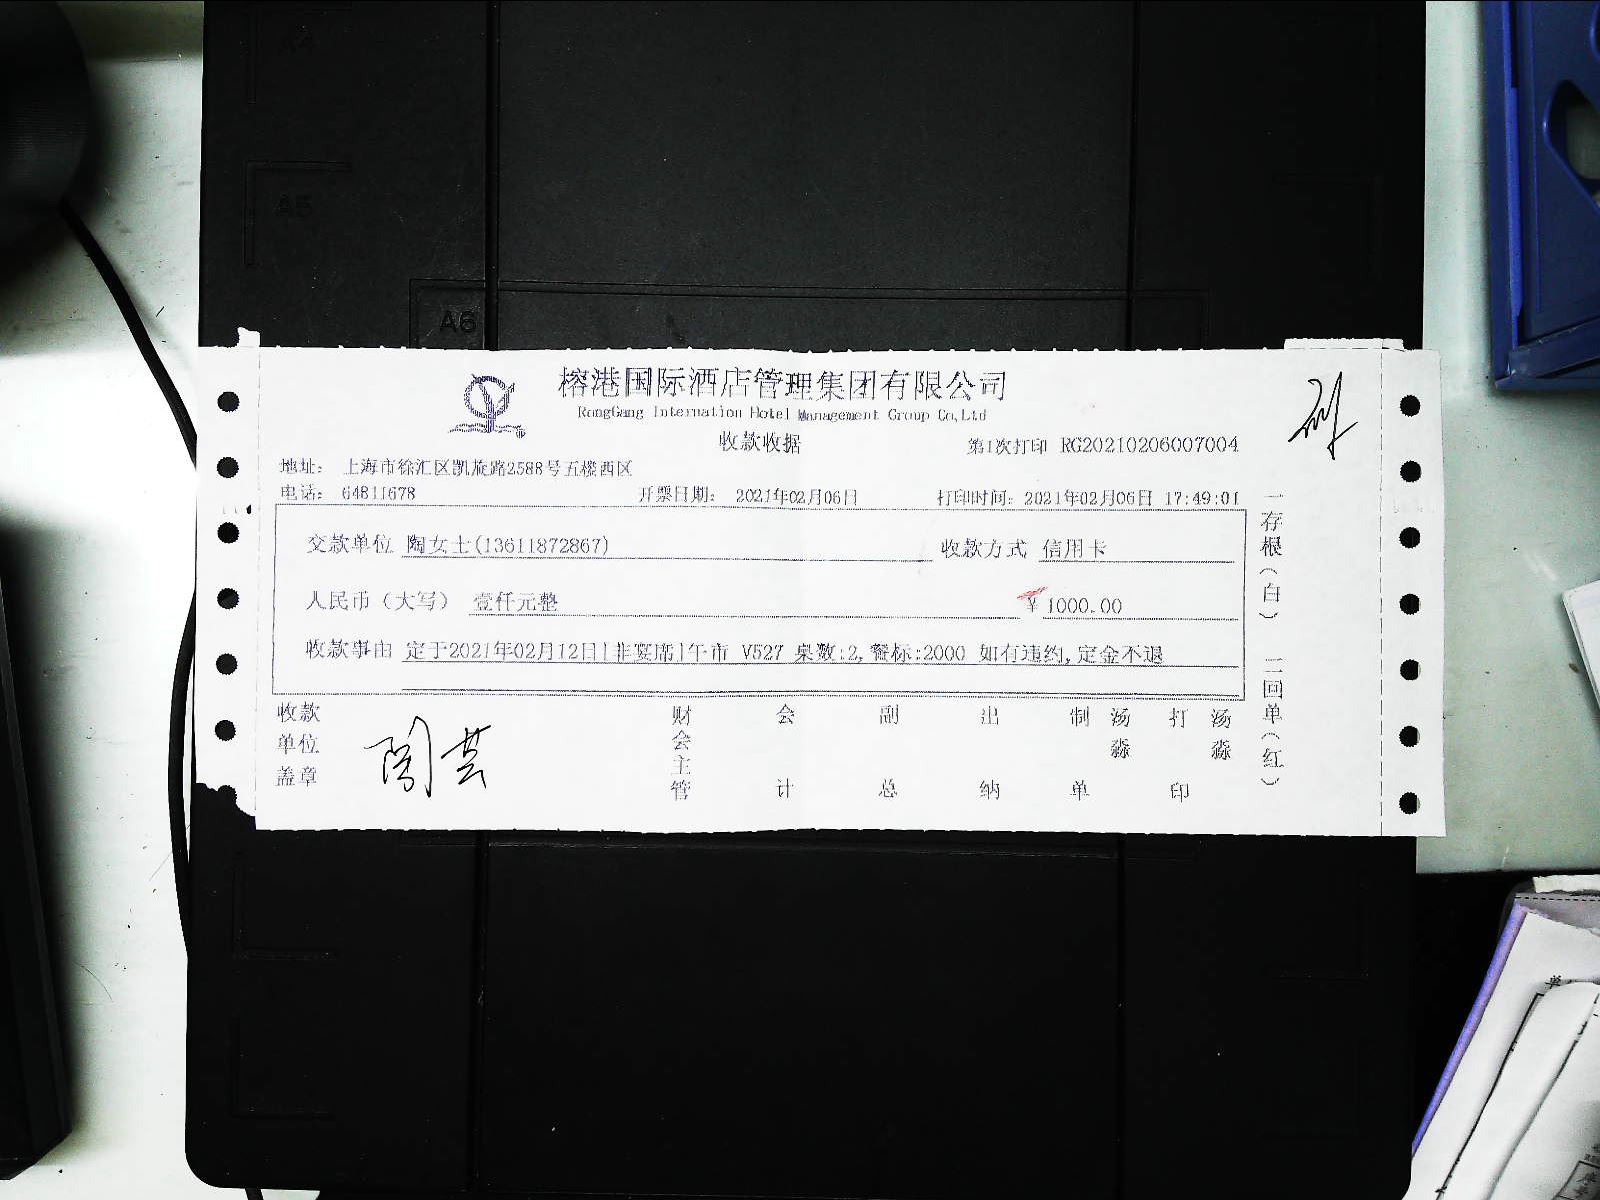 A4
A5
A6
榕港国际酒店管理集团有限公司
RongGang Internation Hotel Management Group Co,Ltd
收款收据
第1次打印 RG20210206007004
地址： 上海市徐汇区凯旋路2588号五楼西区
电话： 64811678 开票日期： 2021年02月06日 打印时间：2021年02月06日 17:49:01
交款单位 陶女士(13611872867) 收款方式 信用卡
人民币（大写） 壹仟元整 ¥ 1000.00
收款事由 定于2021年02月12日|非宴席|午市 V527 桌数:2,餐标:2000 如有违约,定金不退
一存根（白） 二回单（红）
收款单位盖章 陶芸 财会主管 会计 副总 出纳 制单 汤淼 打印 汤淼